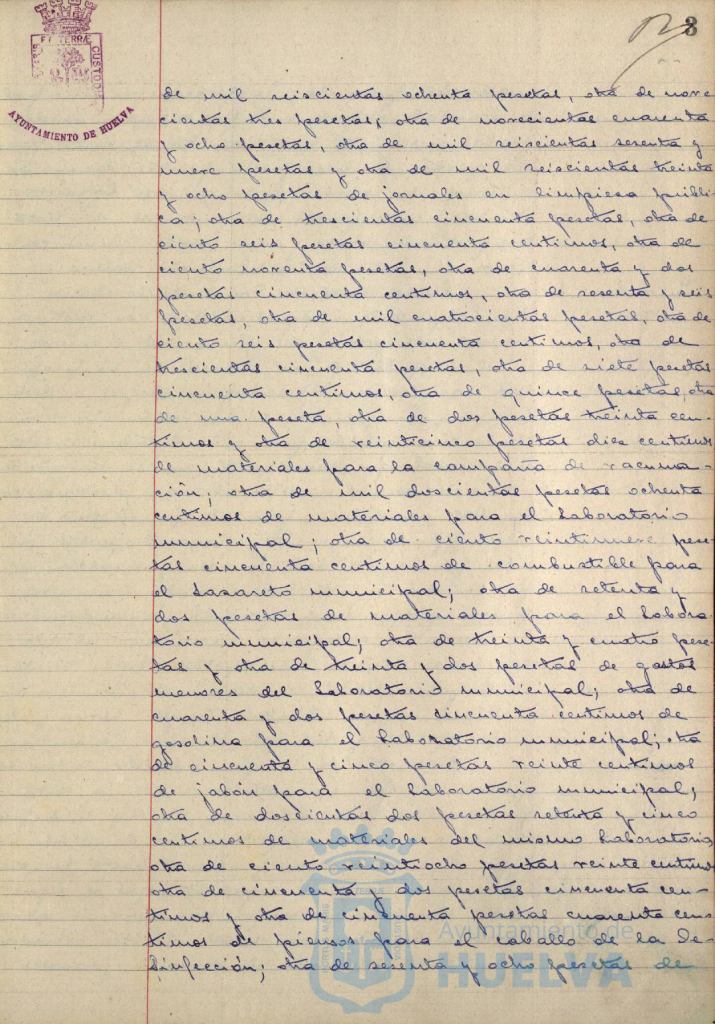 3
PORTUS MARIS
ET TERRÆ
CUSTODIA
AYUNTAMIENTO DE HUELVA
de mil seiscientas ochenta pesetas, otra de nove-
cientas tres pesetas, otra de novecientas cuarenta
y ocho pesetas, otra de mil seiscientas sesenta y
nueve pesetas y otra de mil seiscientas treinta
y ocho pesetas de jornales en limpieza públi-
ca; otra de trescientas cincuenta pesetas, otra de
ciento seis pesetas cincuenta centimos, otra de
ciento noventa pesetas, otra de cuarenta y dos
pesetas cincuenta centimos, otra de sesenta y seis
pesetas, otra de mil cuatrocientas pesetas, otra de
ciento seis pesetas cincuenta centimos, otra de
trescientas cincuenta pesetas, otra de siete pesetas
cincuenta centimos, otra de quince pesetas, otra
de una peseta, otra de dos pesetas treinta cen-
timos y otra de veinticinco pesetas diez centimos
de materiales para la campaña de vacuna-
ción; otra de mil doscientas pesetas ochenta
centimos de materiales para el Laboratorio
municipal; otra de ciento veintinueve pese-
tas cincuenta centimos de combustible para
el Lazareto municipal; otra de setenta y
dos pesetas de materiales para el Labora-
torio municipal; otra de treinta y cuatro pese-
tas y otra de treinta y dos pesetas de gastos
menores del Laboratorio municipal; otra de
cuarenta y dos pesetas cincuenta centimos de
gasolina para el Laboratorio municipal; otra
de cincuenta y cinco pesetas veinte centimos
de jabón para el Laboratorio municipal;
otra de doscientas dos pesetas setenta y cinco
centimos de materiales del mismo Laboratorio,
otra de ciento veintiocho pesetas veinte centimos
otra de cincuenta y dos pesetas cincuenta cen-
timos y otra de cincuenta pesetas cuarenta cen-
timos de piensos para el caballo de la De-
sinfección; otra de sesenta y ocho pesetas de
Ayuntamiento de
HUELVA